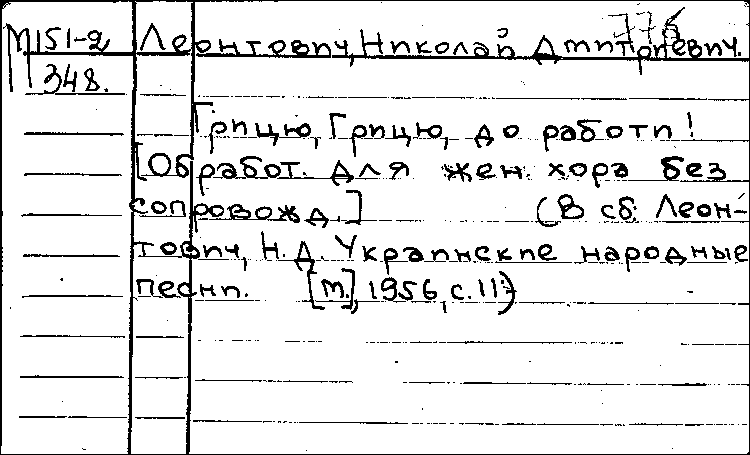 776
М151-2 Леонтович, Николай Дмитриевич.
348.
Грицю, Грицю, до работи!
[Обработ. для жен. хора без
сопровожд.] (В сб. Леон-
тович, Н. Д. Украинские народные
песни. [М.], 1956, с. 117)